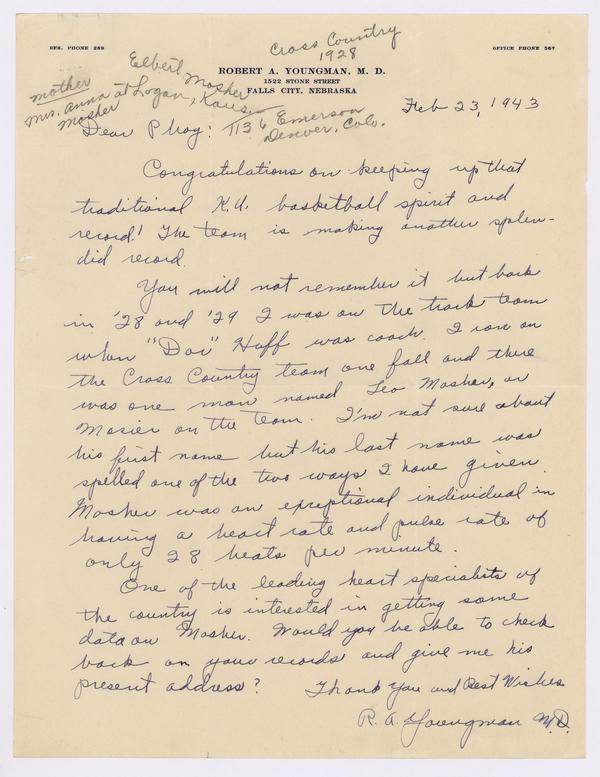 RES. PHONE 289
OFFICE PHONE 567
Cross Country
1928
ROBERT A. YOUNGMAN, M. D.
1522 STONE STREET
FALLS CITY, NEBRASKA
Elbert Mosher
at Logan, Kans.
mother
Mrs. Anna
Mosher
1136 Emerson
Denver, Colo.
Feb 23, 1943
Dear Phog:
Congratulations on keeping up that
traditional K.U. basketball spirit and
record! The team is making another splen-
did record.
You will not remember it but back
in '28 and '29 I was on the track team
when "Doc" Huff was coach. I ran on
the Cross Country team one fall and there
was one man named Leo Mosher, or
Mosier on the team. I'm not sure about
his first name but his last name was
spelled one of the two ways I have given.
Mosher was an exceptional individual in
having a heart rate and pulse rate of
only 28 beats per minute.
One of the leading heart specialists of
the country is interested in getting some
data on Mosher. Would you be able to check
back on your records and give me his
present address? Thank You and Best Wishes
R. A. Youngman M.D.